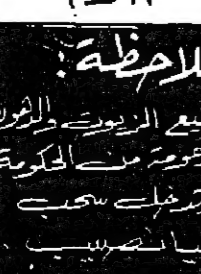 لاحظة:
يع الزيوت والدهون
عومة من الحكومة
تدخل سحب
يانصيب .